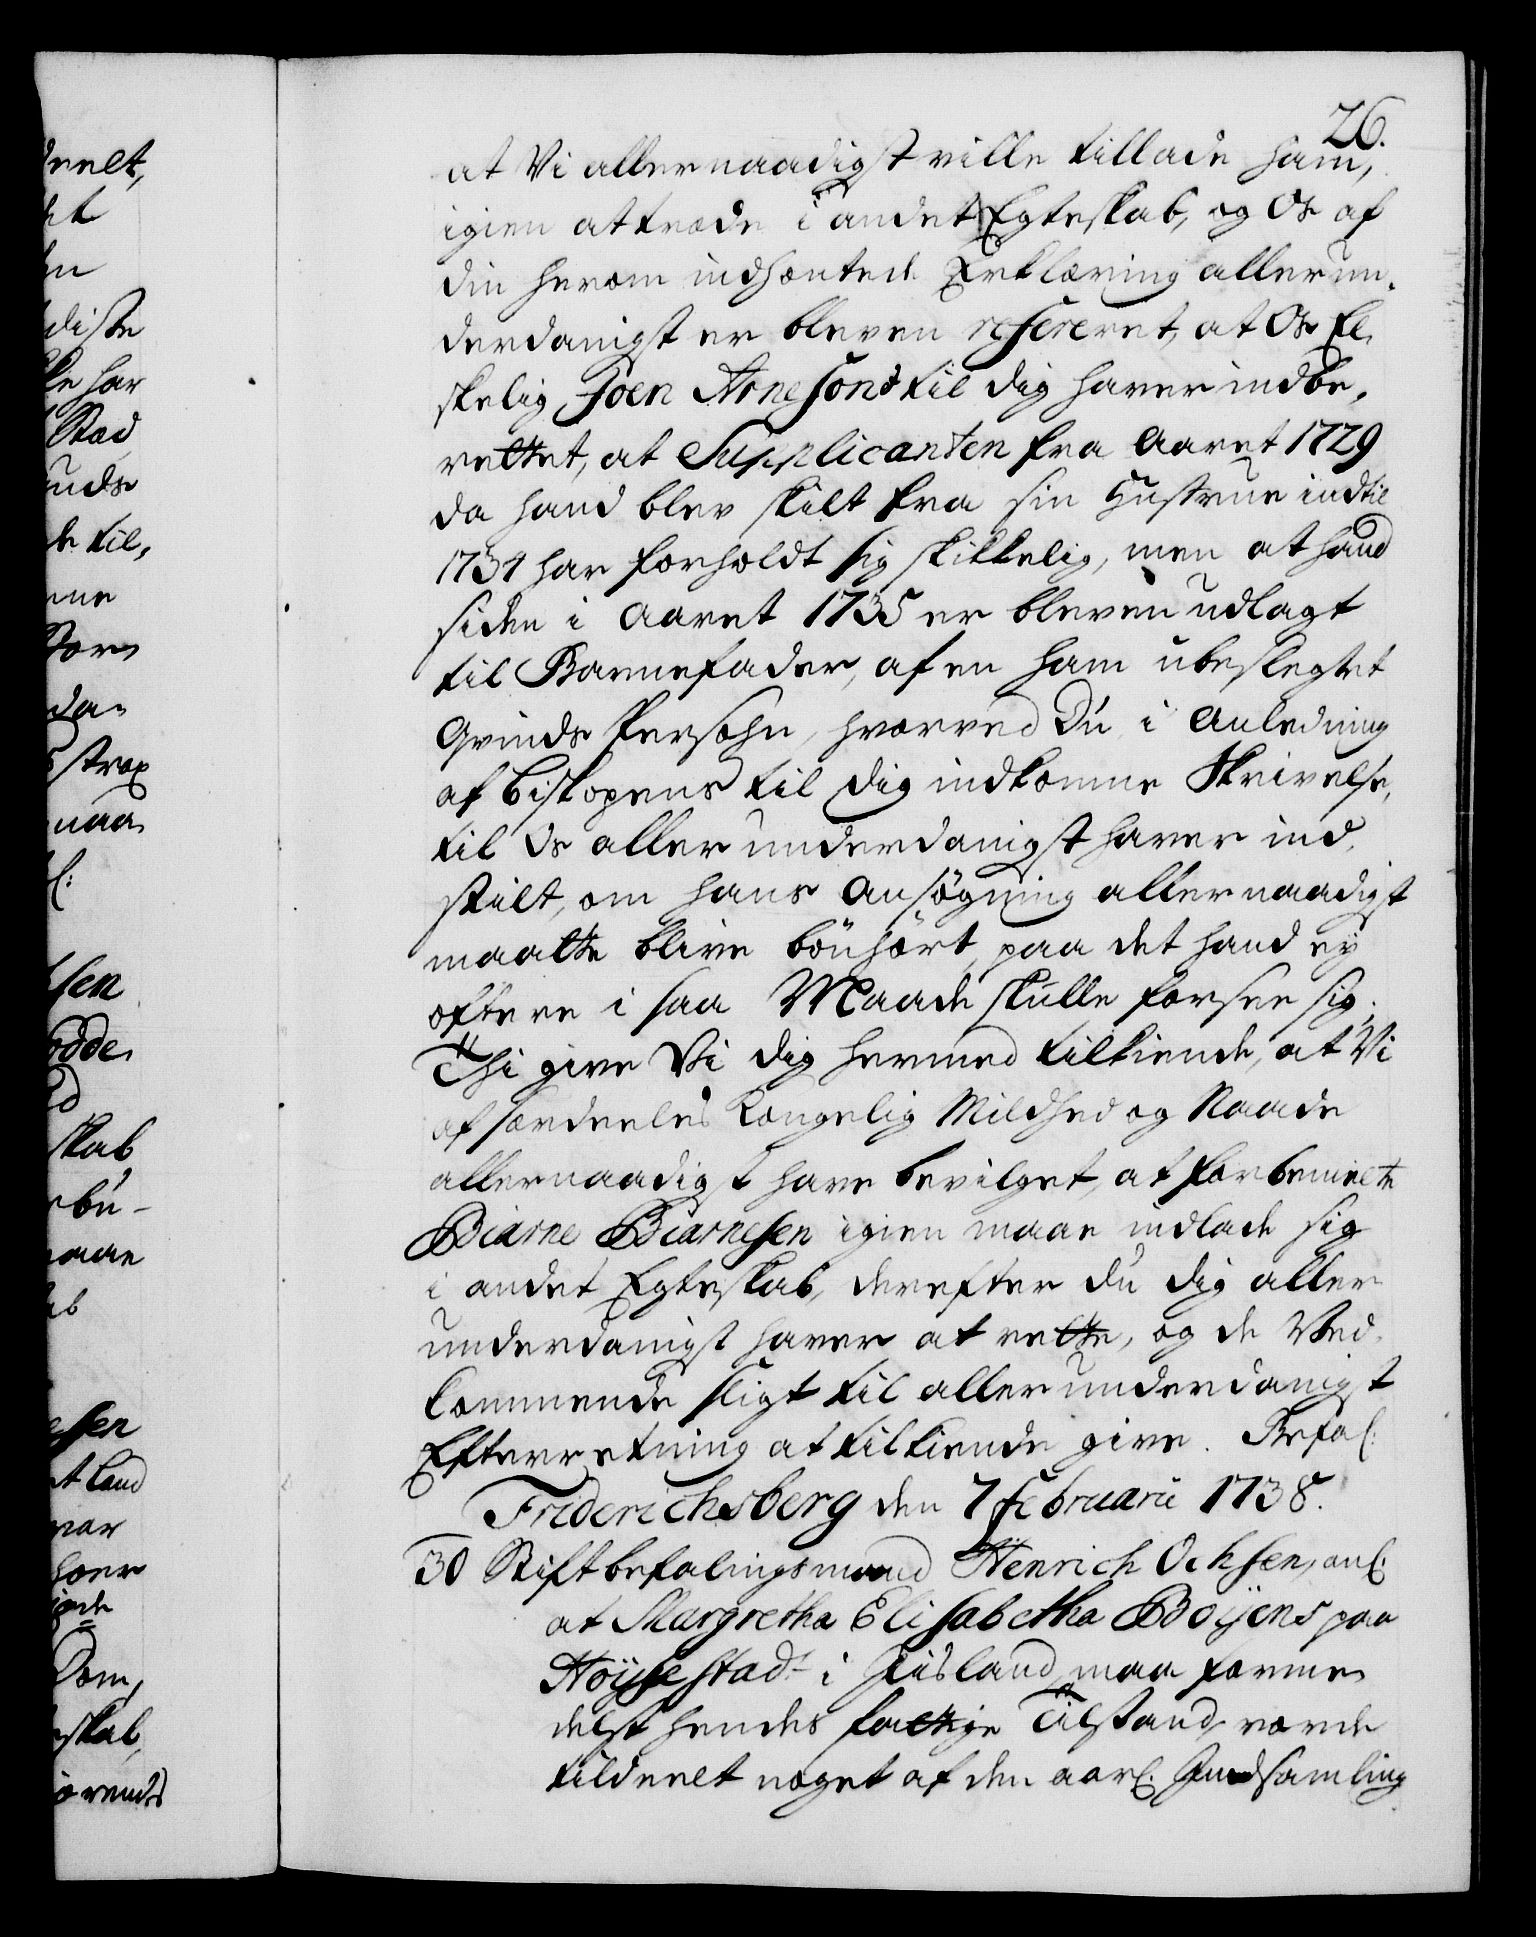 26.
at Vi allernaadigst ville tillade ham,
igien at træde i andet Egteskab, og Os af
din herom indhentede Erklæring allerun-
derdanigst er bleven refereret, at Os El-
skelig Joen Arnesøn til dig haver indbe-
rettet, at Supplicanten fra Aaret 1729
da hand blev skilt fra sin Hustrue indtil
1734 har forholdt sig skikkelig, men at hand
siden i Aaret 1735 er bleven udlagt
til Barnefader, af en ham ubeslegtet
Qvinds Persohn, hvorved Du i Anledning
af Biskopens til dig indkomne Skrivelse,
til Os allerunderdanigst haver ind-
stilt, om hans Ansøgning allernaadigst
maatte blive bönhört, paa det hand ey
oftere i saa Maade skulle forsee sig.
Thi give Vi dig hermed tilkiende, at Vi
af særdeeles Kongelig Mildhed og Naade
allernaadigst have bevilget, at forbemelte
Biarne Biarnesen igien maae indlade sig
i andet Egteskab, derefter du dig aller-
underdanigst haver at rette, og de Ved-
kommende sligt til allerunderdanigst
Efterretning at tilkiende give. Befal:
Friderichsberg den 7 Februarii 1738.
30 Stiftbefalingsmand Henrich Ochsen, anl:
at Margretha Elisabetha Boÿens paa
Höÿsestad i Iisland, maa forme-
delst hendes fattige Tilstand, vorde
tildeelt noget af den aarl: Indsamling
deelt,
diste
har
Stad
til,
strax
maa
sen
skab
maae
esen
Land
var
Dom,
skab,